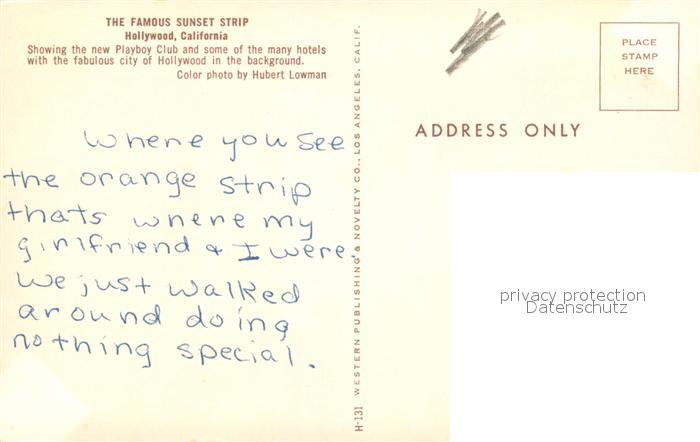 THE FAMOUS SUNSET STRIP
Hollywood, California
Showing the new Playboy Club and some of the many hotels
with the fabulous city of Hollywood in the background.
Color photo by Hubert Lowman
Where you see
the orange strip
thats where my
girlfriend & I were.
We just walked
around doing
nothing special.
H-131 WESTERN PUBLISHING & NOVELTY CO., LOS ANGELES, CALIF.
PLACE
STAMP
HERE
ADDRESS ONLY
privacy protection
Datenschutz